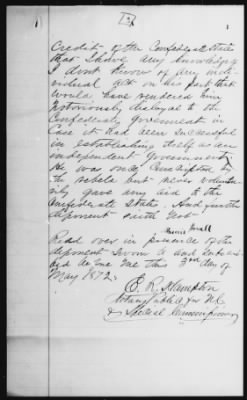 3
Credit of the Confederate States
that I have any knowledge of
I dont know of any indi-
vidual act on his part that
would have rendered him
notoriously disloyal to the
Confederate Government in
Case it had been successful
in establishing itself as an
independent Government
He was once Conscripted by
the rebels but never volunta
rily gave any aid to the
Confederate States. And further
deponent saith not
Read over in presence of the
deponent Sworn to and Subscri
bed before me this 3rd day of
May 1872.
E. R. Hampton
Notary Public for N.C.
& Special Commissioner